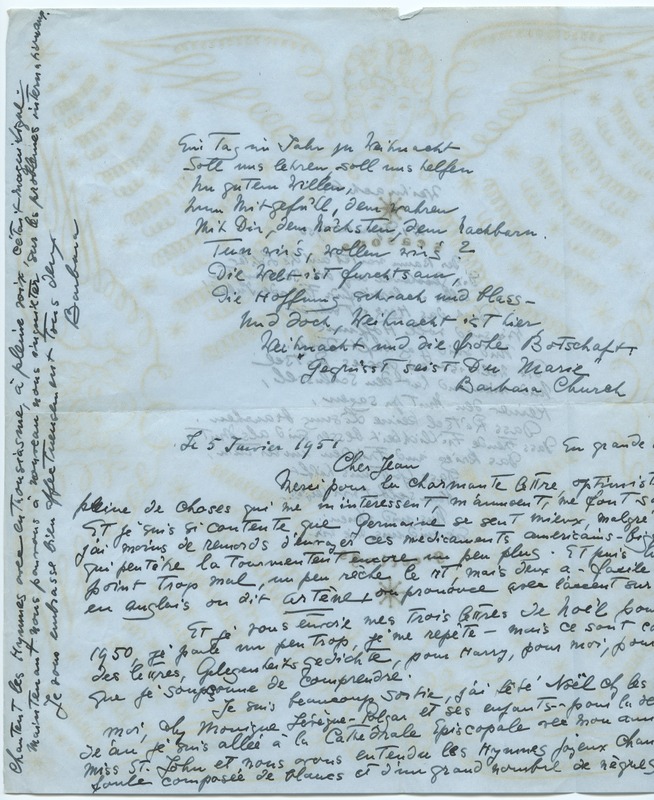 Ein Tag im Jahr zu Weihnacht
Soll uns lehren, soll uns helfen
Im gutem Willen,
Zum Mitgefühl, dem wahren
Mit Dir, dem Nächsten, dem Nachbarn.
Tun wir's, wollen wir's ?
Die Welt ist furchtsam,
Die Hoffnung schwach und blass –
Und doch, Weihnacht ist hier
Weihnacht und die frohe Botschaft:
"Gegrüsst seist Du Marie"
Barbara Church
Le 5 Janvier 1951
En grande
Cher Jean
Merci pour la charmante lettre optimist
pleine de choses qui me m'interessent m'amusent, me font
Et je suis si contente que Germaine se sent mieux, malgré
j'ai moins de remords d'envoyer ces medicaments americains
qui peut être la tourmentent encore un peu plus. Et puis
point trop mal, un peu rèche le rt, mais deux a - facile
en anglais on dit Artane + on prononce avec l'accent sur
Et je vous envoie mes trois lettres de Noël
1950, je parle un peu trop, je me repète – mais ce sont
des lettres, Gelegenheitsgedichte, pour Harry, pour moi, pou
que je soupçonne de comprendre.
Je suis beaucoup sortie, j'ai fêté Noël
moi, chez Monique et ses enfants – pour la
an je suis allée à la Cathedrale Episcopale avec mon
miss St. John et nous avons entendu les Hymnes joyeux
foule composée de blancs et d'un grand nombre de nègres
Chantent les Hymnes avec enthousiasme, à pleine voix, c'était magnifique.
Maintenant nous pouvons à nouveau nous inquiéter sur les problèmes internationaux.
Je vous embrasse bien affectueusement tous deux
Barbara